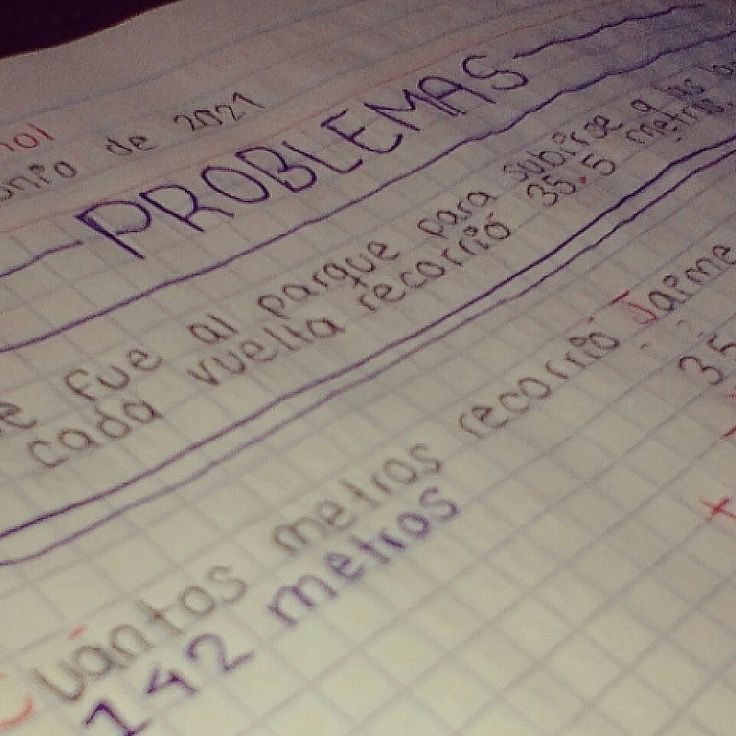 de 2021
PROBLEMAS
fue al parque para subirse a
cada vuelta recorrió 35.5 metros
Cuántos metros recorrió Jaime
142 metros
35
+